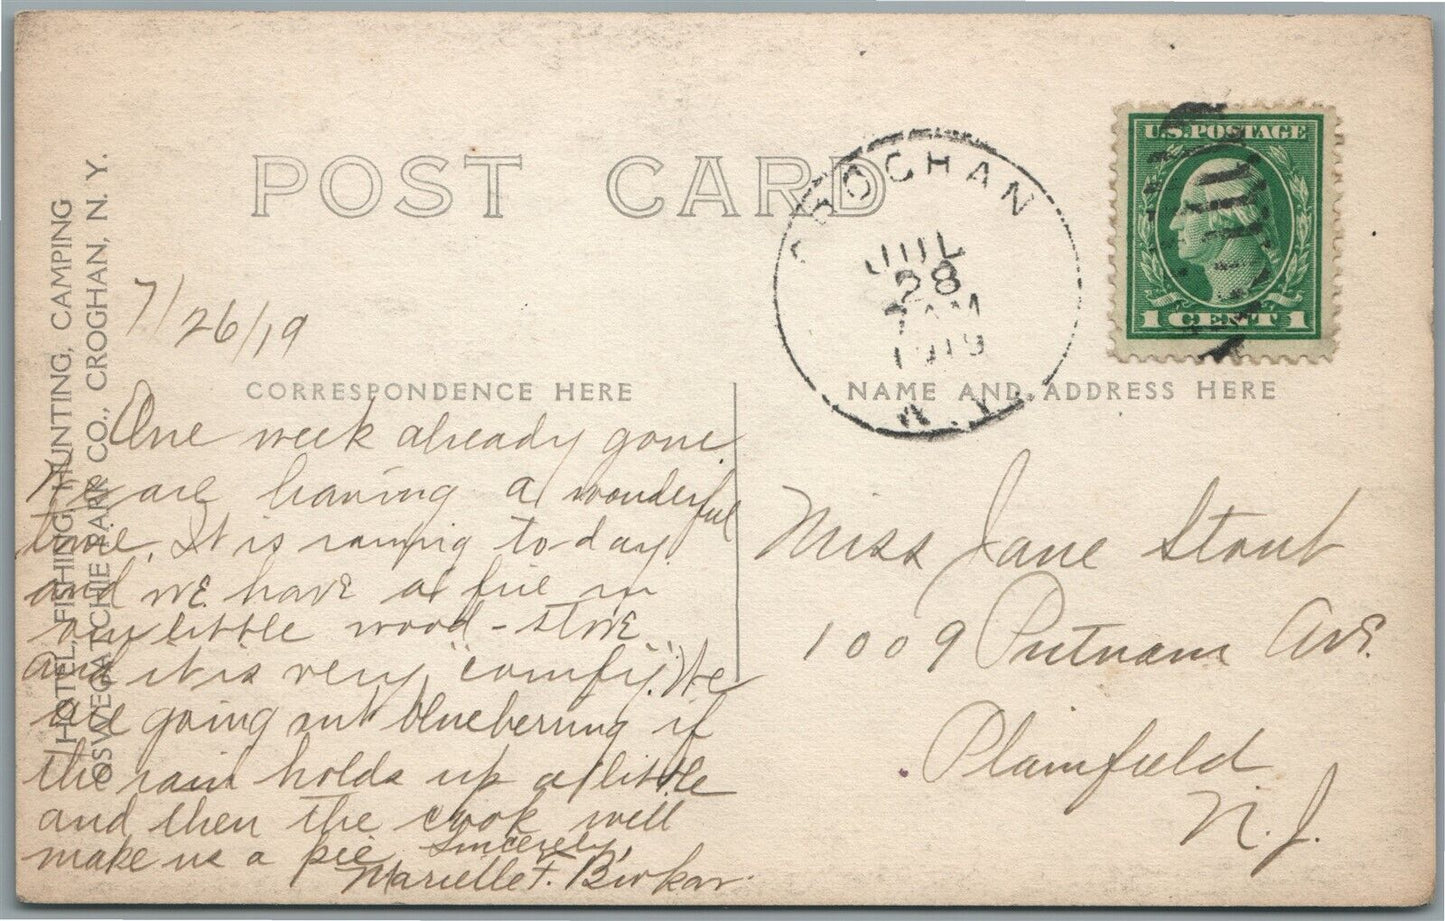 POST CARD
CROGHAN
JUL
28
AM
1919
N.Y.
U.S. POSTAGE
1 CENT 1
HOTEL, FISHING, HUNTING, CAMPING
OSWEGATCHIE PARK CO., CROGHAN, N. Y.
7/26/19
CORRESPONDENCE HERE
One week already gone.
We are having a wonderful
time. It is raining today
and we have a fire in
our little wood-stove
and it is very "comfy". We
are going out blueberring if
the rain holds up a little
and then the cook will
make us a pie. Sincerely,
Marielle F.
NAME AND ADDRESS HERE
Miss Jane Stout
1009 Putnam Ave.
Plainfield
N. J.